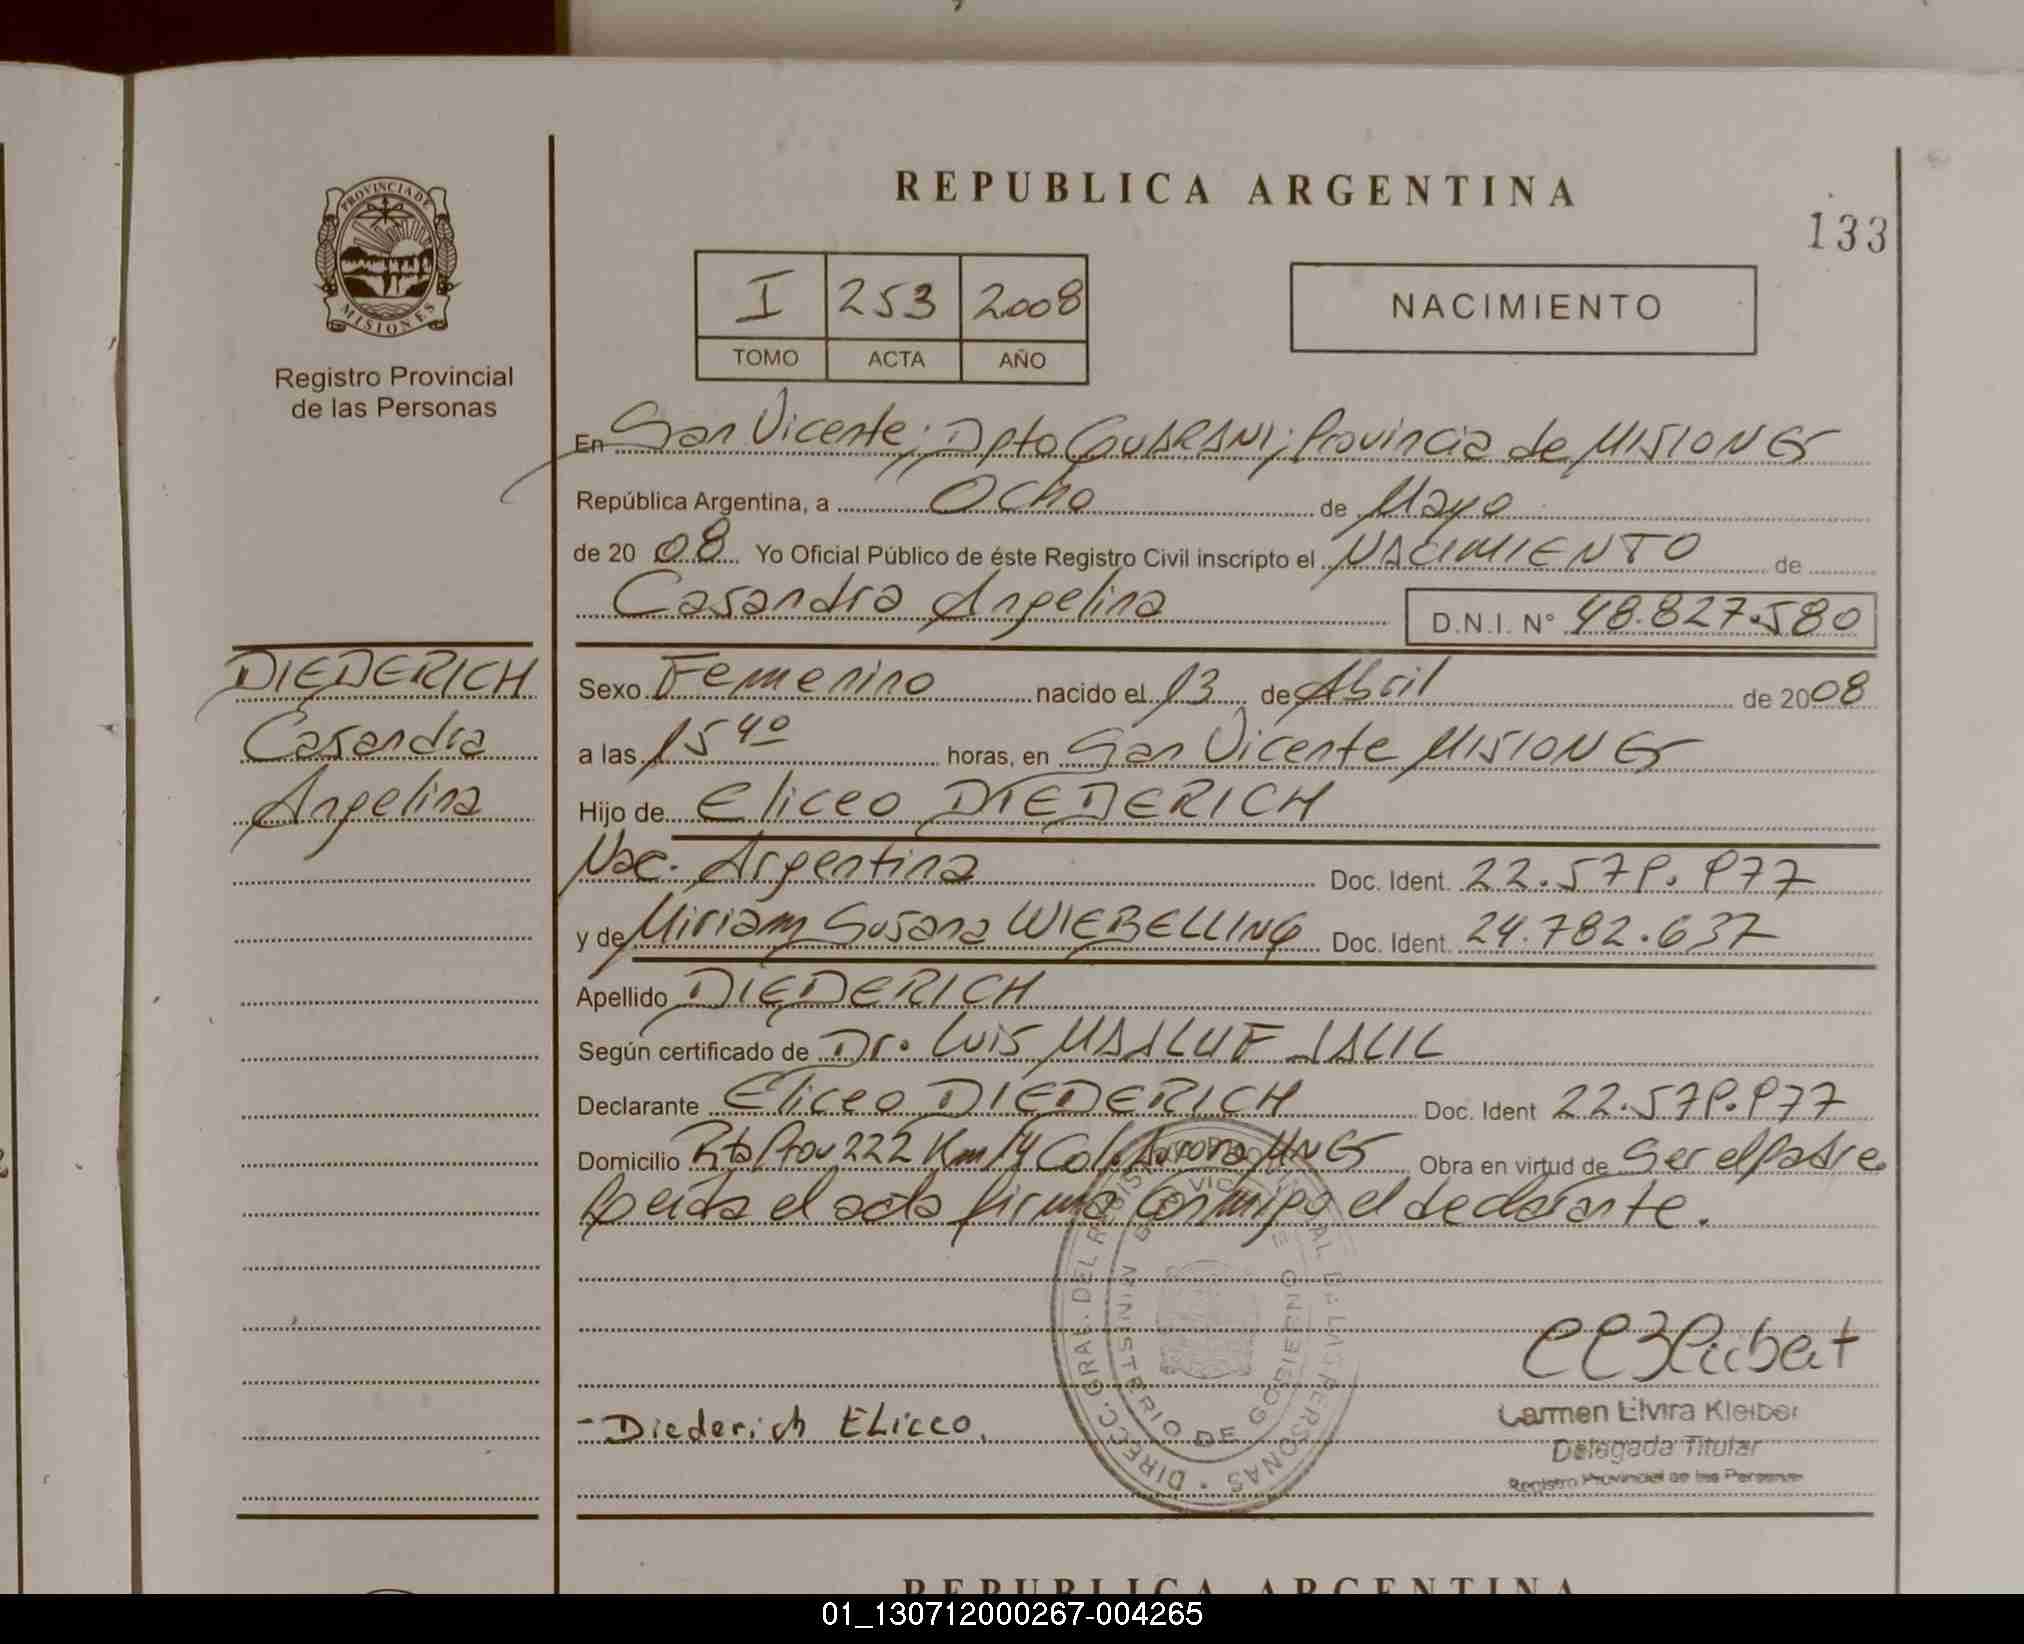 REPUBLICA ARGENTINA
133
PROVINCIA DE
MISIONES
Registro Provincial
de las Personas
I 253 2008
TOMO ACTA AÑO
NACIMIENTO
En San Vicente; Dpto GUARANI; Provincia de MISIONES
República Argentina, a Ocho de Mayo
de 2008 Yo Oficial Público de éste Registro Civil inscripto el NACIMIENTO de
Casandra Angelina D.N.I. N° 48.827.580
DIEDERICH
Casandra
Angelina
Sexo Femenino nacido el 13 de Abril de 2008
a las 15 40 horas, en San Vicente MISIONES
Hijo de Eliceo DIEDERICH
Nac. Argentina Doc. Ident. 22.579.977
y de Miriam Susana WIEBELLING Doc. Ident. 24.782.637
Apellido DIEDERICH
Según certificado de Dr. Luis MAALUF JALIL
Declarante Eliceo DIEDERICH Doc. Ident 22.579.977
Domicilio Rta Prov 222 Km 14 Col. Aurora MNES Obra en virtud de Ser el Padre
Leida el acta firma conmigo el declarante.
DIRECC. GRAL. DEL REGISTRO PROVINCIAL DE LAS PERSONAS
MINISTERIO DE GOBIERNO
-Diederich ELiceo.
Carmen Elvira Kleiber
Delegada Titular
Registro Provincial de las Personas
REPUBLICA ARGENTINA
01_130712000267-004265